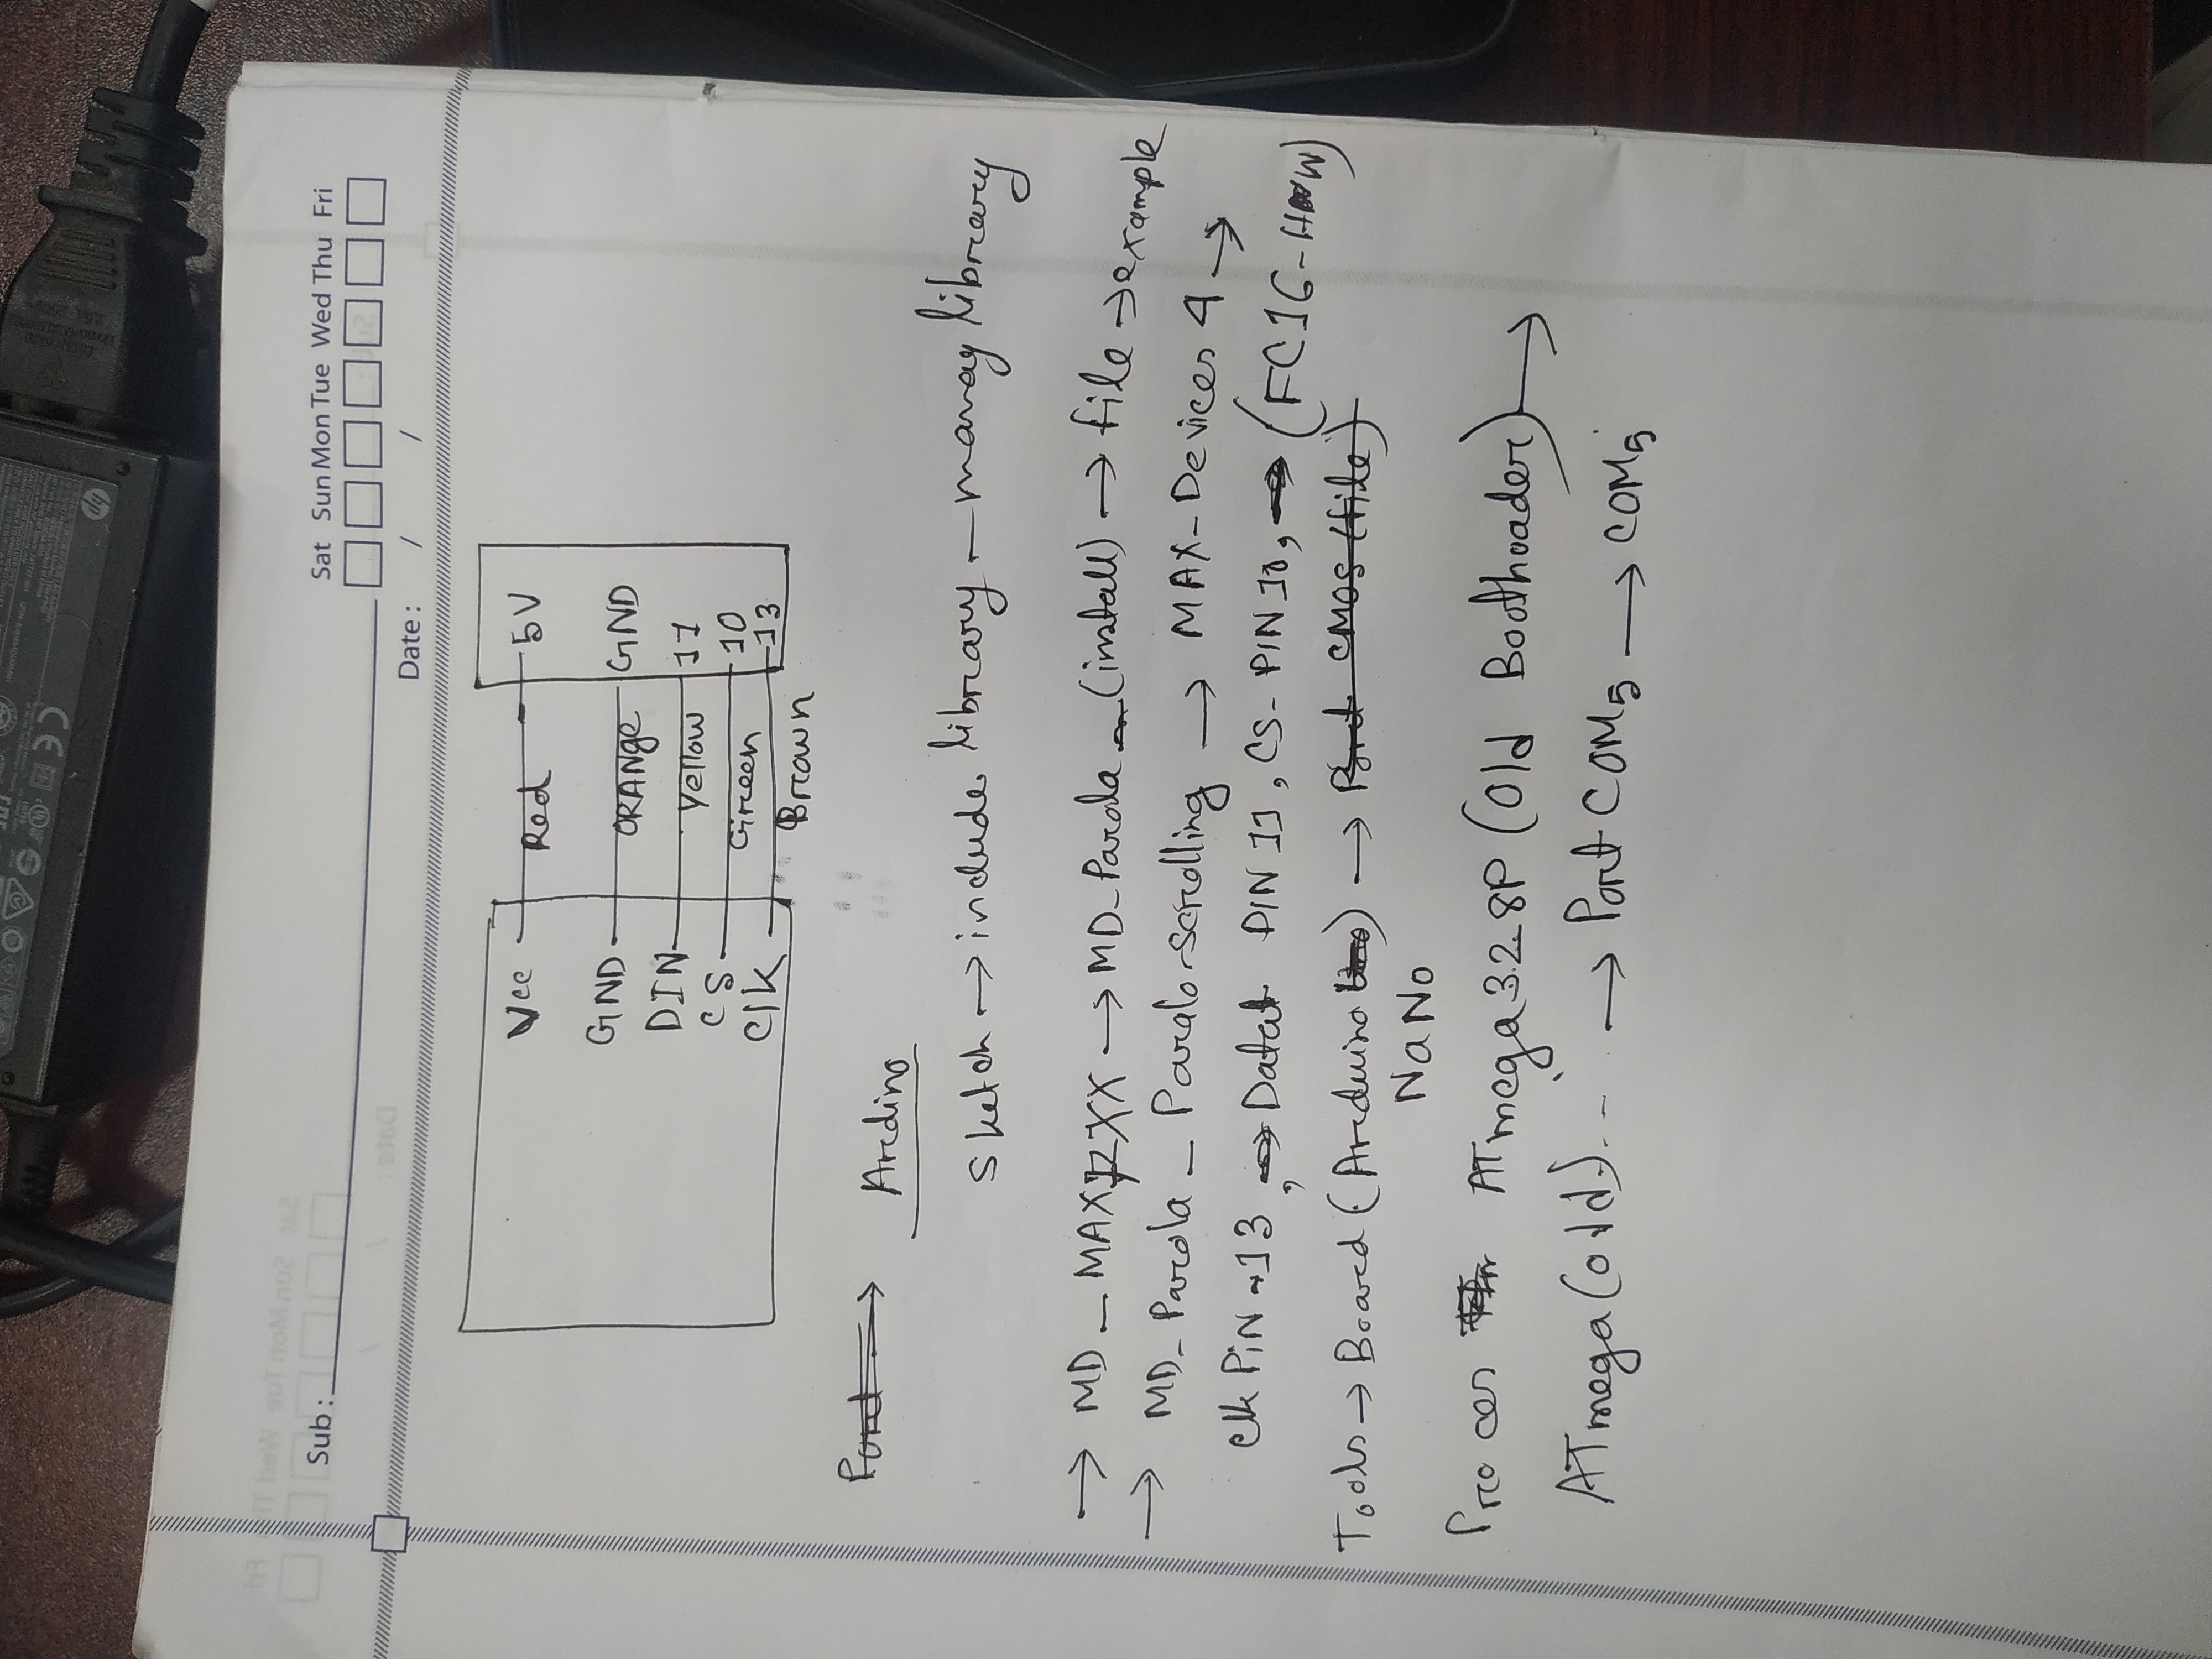 hp
Sub :
Sat Sun Mon Tue Wed Thu Fri
Date : / /
Vcc Red 5V
GND ORANge GND
DIN Yellow 11
CS Green 10
Clk Brown 13
Ardino
sketch → include library – manag library
→ MD_MAX72XX → MD_Parola – (install) → file → example
→ MD_Parola – Paralo-scrolling → MAX-Devices 4 →
clk PiN → 13, Datat DIN 11, CS-PIN 10, (FC16-HW)
Tools → Board (Arduino) →
NaNo
Proces ATmega328P (Old Boothoader) →
ATmega (old)... → Port COM5 → COM5